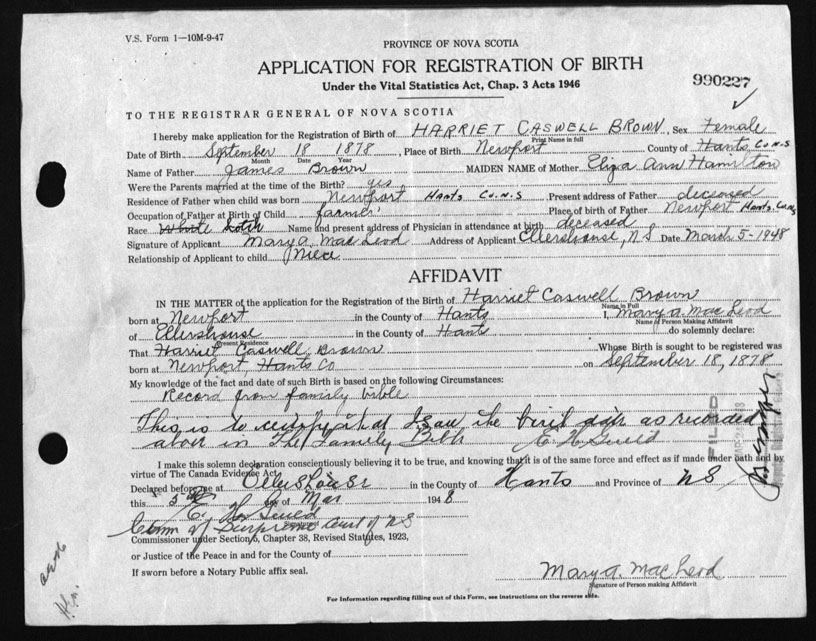 V.S. Form 1—10M-9-47
PROVINCE OF NOVA SCOTIA
APPLICATION FOR REGISTRATION OF BIRTH
Under the Vital Statistics Act, Chap. 3 Acts 1946
990227
TO THE REGISTRAR GENERAL OF NOVA SCOTIA
I hereby make application for the Registration of Birth of HARRIET CASWELL BROWN, Sex Female
Print Name in full
Date of Birth September 18 1878, Place of Birth Newport County of Hants Co N.S
Month Date Year
Name of Father James Brown MAIDEN NAME of Mother Eliza Ann Hamilton
Were the Parents married at the time of the Birth? yes
Residence of Father when child was born Newport Hants Co. N.S Present address of Father deceased
Occupation of Father at Birth of Child farmer Place of birth of Father Newport Hants. Co NS
Race White Name and present address of Physician in attendance at birth deceased
Signature of Applicant Mary A. MacLeod Address of Applicant Ellershouse, N S Date March 5-1948
Relationship of Applicant to child Niece
AFFIDAVIT
IN THE MATTER of the application for the Registration of the Birth of Harriet Caswell Brown
Name in Full
born at Newport in the County of Hants I, Mary A. MacLeod
Name of Person Making Affidavit
of Ellershouse in the County of Hants do solemnly declare:
Present Residence
That Harriet Caswell Brown Whose Birth is sought to be registered was
born at Newport, Hants Co on September 18, 1878
My knowledge of the fact and date of such Birth is based on the following Circumstances:
Record from family bible
This is to certify that I saw the birth as recorded
above in The Family Bible
FILED
I make this solemn declaration conscientiously believing it to be true, and knowing that it is of the same force and effect as if made under oath and by
virtue of The Canada Evidence Act.
Declared before me at Ellershouse in the County of Hants and Province of NS
this 5th day of Mar 1948
Comm of Supreme Court of NS
Commissioner under Section 6, Chapter 38, Revised Statutes, 1923,
or Justice of the Peace in and for the County of
If sworn before a Notary Public affix seal.
Mary A. MacLeod
Signature of Person making Affidavit
For Information regarding filling out of this Form, see instructions on the reverse side.